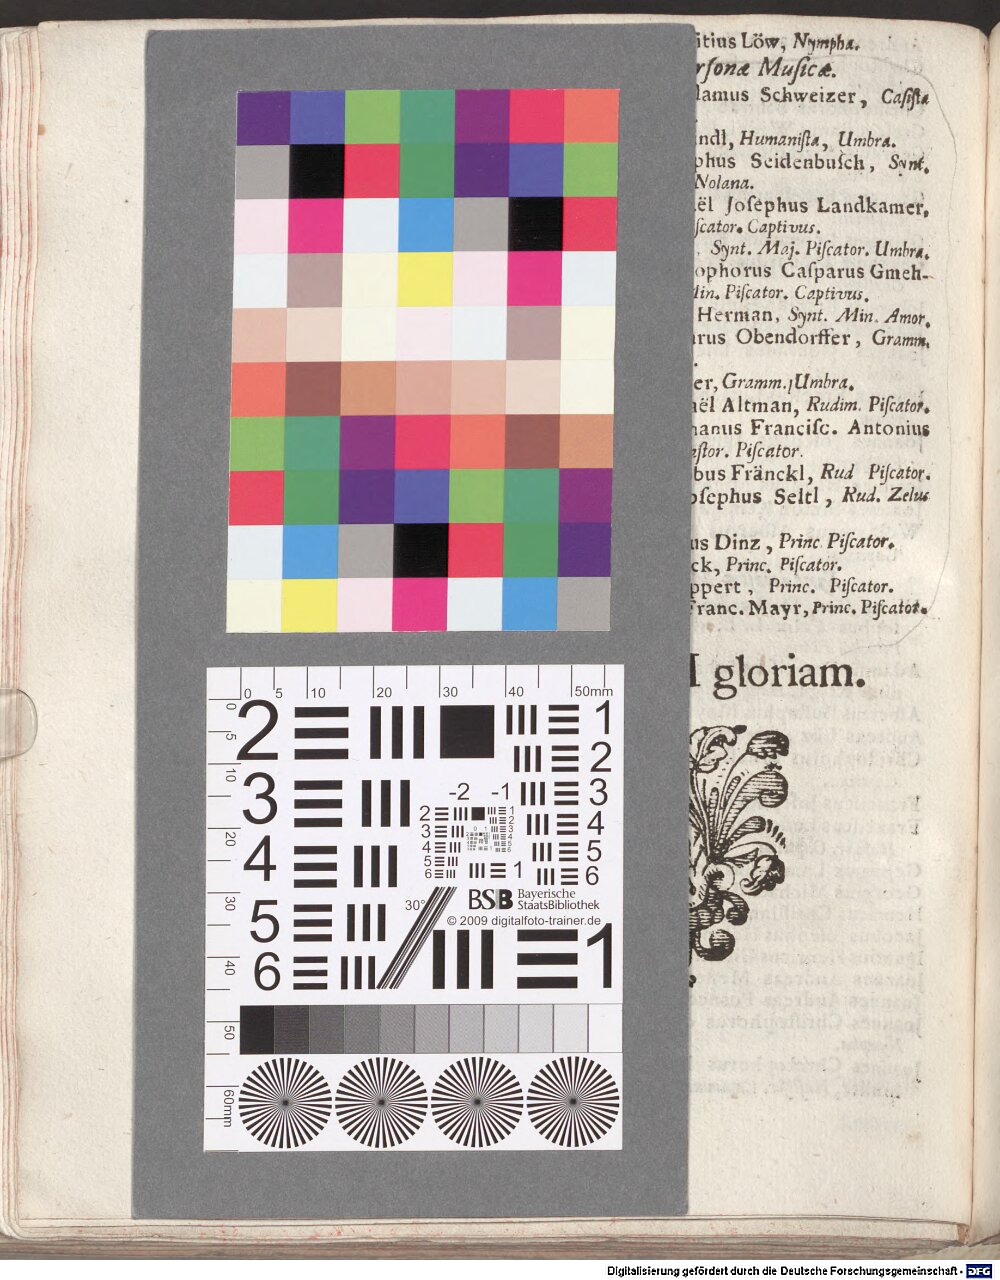 itius Löw, Nympha.
rſonæ Muſicæ.
lamus Schweizer, Caſiſta
ndl, Humaniſta, Umbra.
phus Seidenbuſch, Synt.
Nolana.
ël Joſephus Landkamer,
ſcator. Captivus.
Synt. Maj. Piſcator. Umbra.
ophorus Caſparus Gmeh-
in. Piſcator. Captivus.
Herman, Synt. Min. Amor.
rus Obendorffer, Gramm.
er, Gramm. Umbra.
aël Altman, Rudim. Piſcator.
nanus Franciſc. Antonius
ſtor. Piſcator.
bus Fränckl, Rud Piſcator.
oſephus Seltl, Rud. Zelus
us Dinz, Princ Piſcator.
ck, Princ. Piſcator.
ppert, Princ. Piſcator.
Franc. Mayr, Princ. Piſcator.
I gloriam.
0 5 10 20 30 40 50mm
0 5 10 20 30 40 50 60mm
2 1
2
3 3
4 4
5 5
6 6
-2 -1
2 1
3 2
4 3
5 4
6 5
6
1
30°
BSB Bayerische
StaatsBibliothek
© 2009 digitalfoto-trainer.de
1
Digitalisierung gefördert durch die Deutsche Forschungsgemeinschaft - DFG